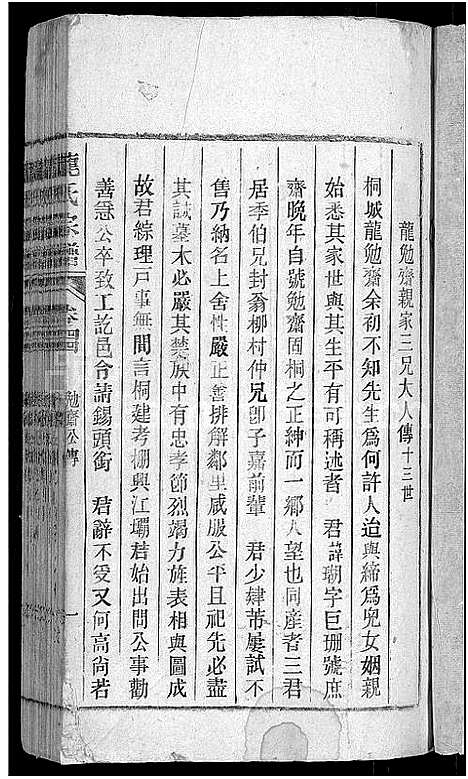 龍勉齋親家三兄大人傳十三世
桐城龍勉齋余初不知先生爲何許人迨與締爲兒女姻親
始悉其家世與其生平有可稱述者 君諱瑚字巨珊號庶
齋晚年自號勉齋固桐之正紳而一鄉人望也同産者三君
居季伯兄封翁柳村仲兄卽子嘉前輩 君少肆芾屢試不
售乃納名上舍性嚴正善排解鄰里咸服公平且祀先必盡
其誠墓木必嚴其禁族中有忠孝節烈竭力旌表相與圖成
故君綜理戸事無間言桐建考棚興江壩君始出問公事勸
善急公卒致工訖邑令請錫頭銜 君辭不受又何高尚若
龍氏家譜
卷四
勉齋公傳
一